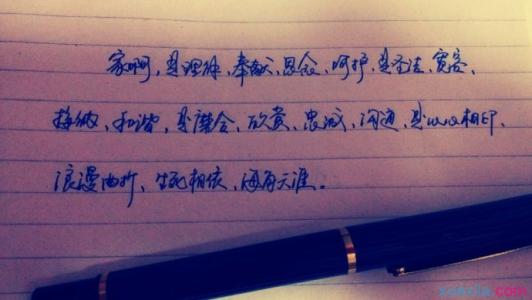 家啊，是理解、奉献、思念、呵护，是圣洁、宽容、
接纳、和谐，是磨合、欣赏、忠诚、沟通，是心心相印、
浪漫曲折、生死相依、海角天涯。